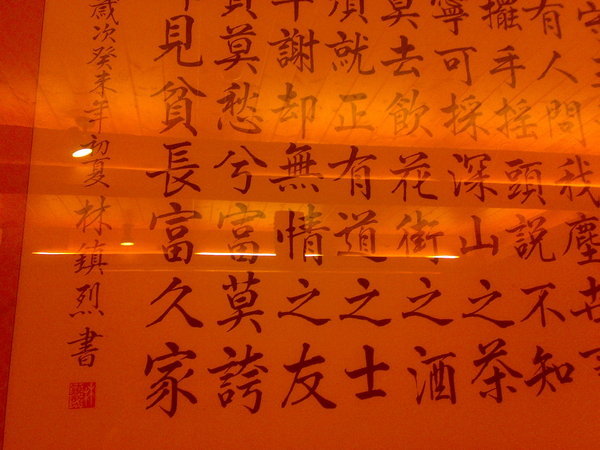 有人問我塵世事
擺手搖頭說不知
寧可採深山之茶
莫去飲花街之酒
須就正有道之士
謝却無情之友
莫愁兮富莫誇
見貧長富久家
歲次癸未年初夏 林鎮烈書